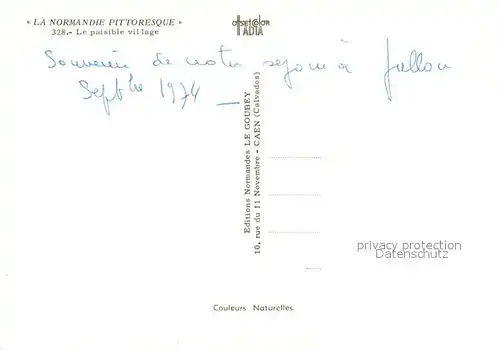 « LA NORMANDIE PITTORESQUE »
328.- Le paisible village
OFFSET COLOR
IADIA
Souvenir de notre sejour à Jullou
Septbre 1974 —
Editions Normandes LE GOUBEY
10, rue du 11 Novembre - CAEN (Calvados)
privacy protection
Datenschutz
Couleurs Naturelles